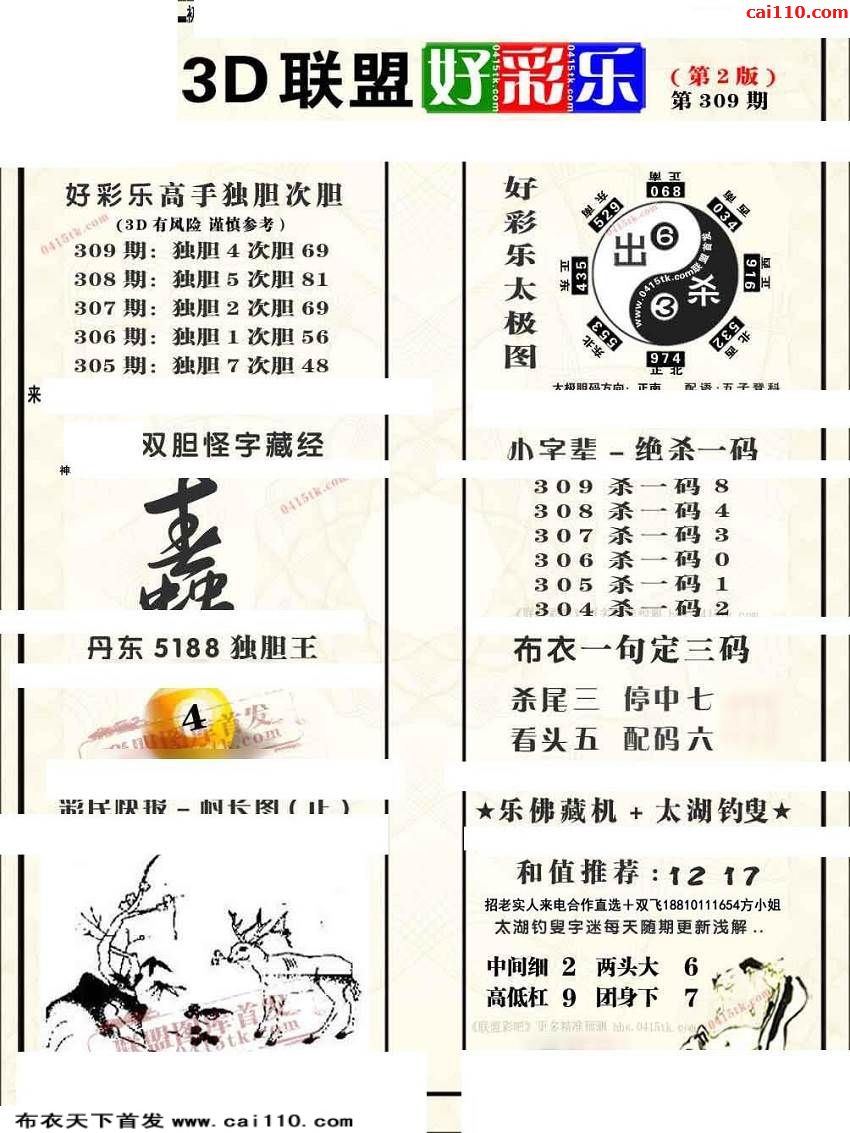 cai110.com
3D联盟好彩乐
(第2版)
第309期
好彩乐高手独胆次胆
(3D有风险 谨慎参考)
309期: 独胆4次胆69
308期: 独胆5次胆81
307期: 独胆2次胆69
306期: 独胆1次胆56
305期: 独胆7次胆48
0415tk.com
好彩乐太极图
正南 068
西南 034
正西 916
西北 532
正北 974
东北 553
正东 435
东南 529
出 6
杀 3
www.0415tk.com联盟首发
太极胆码方向: 正南 配语:五子登科
来
双胆怪字藏经
神
0415tk.com
小字辈-绝杀一码
309 杀一码 8
308 杀一码 4
307 杀一码 3
306 杀一码 0
305 杀一码 1
304 杀一码 2
丹东5188独胆王
4
布衣一句定三码
杀尾三 停中七
看头五 配码六
彩民快报-村长图(正)
联盟图库首发
0415tk.com
★乐佛藏机+太湖钓叟★
和值推荐:12 17
招老实人来电合作直选+双飞18810111654方小姐
太湖钓叟字迷每天随期更新浅解..
中间细 2 两头大 6
高低杠 9 团身下 7
《联盟彩吧》更多精准预测 bbs.0415tk.com
0415tk.com
布衣天下首发 www.cai110.com